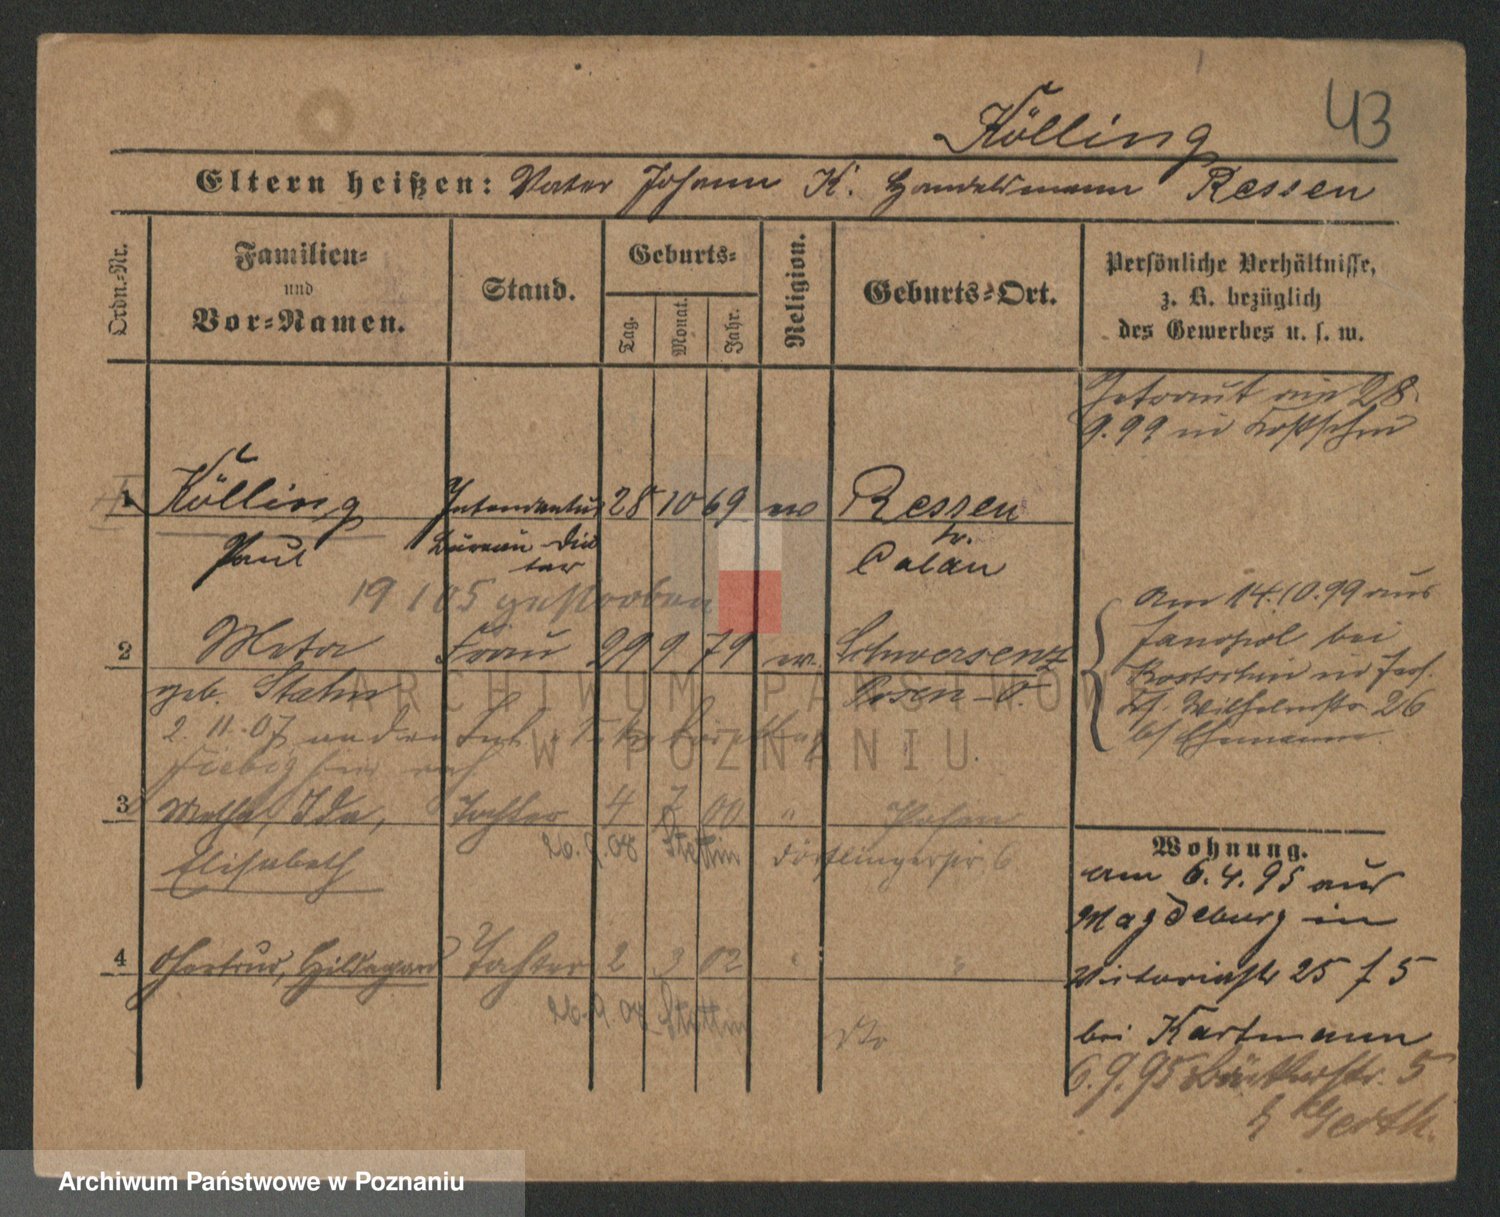 Kölling
43
Eltern heißen: Vater Johann K. Handelsmann Ressen
Ordn.-Nr.
Familien-
und
Vor-Namen.
Stand.
Geburts-
Tag.
Monat.
Jahr.
Religion.
Geburts-Ort.
Persönliche Verhältnisse,
z. B. bezüglich
des Gewerbes u. s. w.
Getraut am 28.
9.99 in Kostschin
1 Kölling Intendantur 28 10 69 ev Ressen
Paul Bureau-Diä Kr.
tar Calau
19 1 05 gestorben
2 Meta Frau 29 9 79 ev. Schwersenz
geb. Posen-O.
2.11.07 an den
Fiebig
3 Ida, Tochter 4 7 00 " Posen
Elisabeth
26.9.08 Stettin 6
4 Gertrud, Hildegard Tochter 2 3 02 " "
26.9.08 Stettin
Am 14.10.99 aus
bei
Kostschin in
Wilhelmstr 26
b/ Ehmann
Wohnung.
am 6.4.95 aus
Magdeburg in
Victoriastr 25 f 5
bei Hartmann
6.9.95 Bäckerstr. 5
b Gerth.
ARCHIWUM PAŃSTWOWE
W POZNANIU
Archiwum Państwowe w Poznaniu